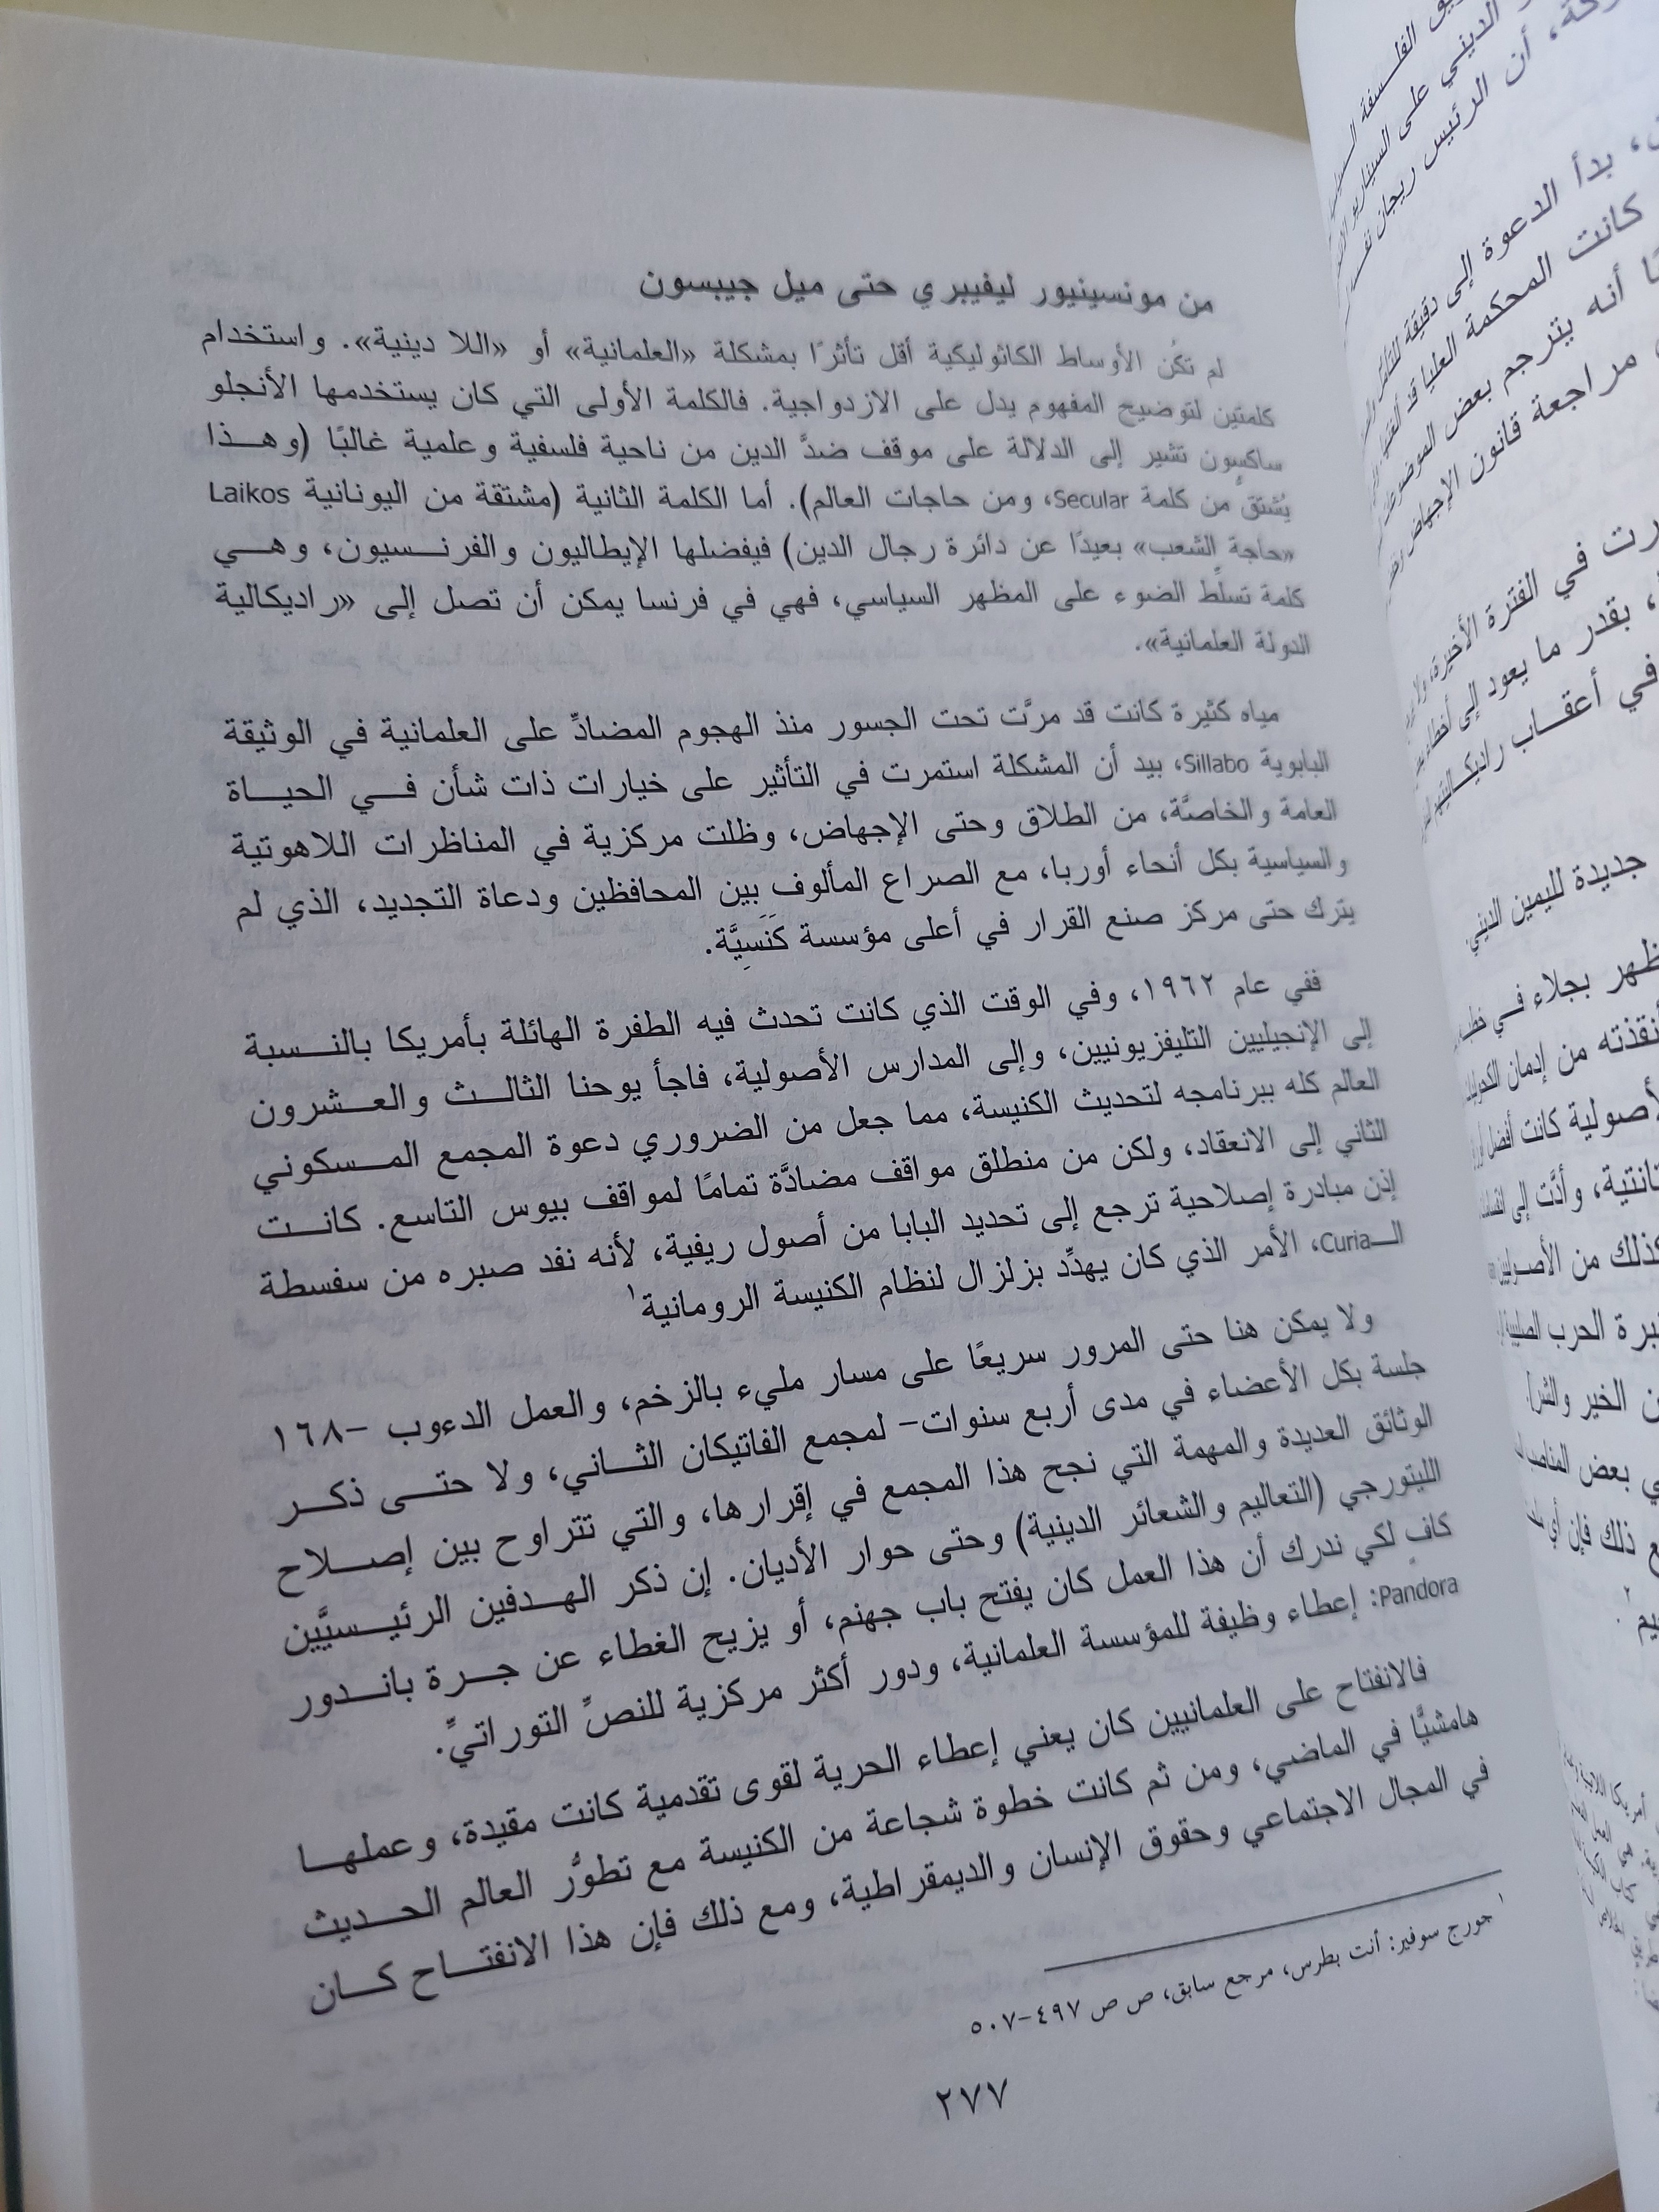 من مونسينيور ليفيبري حتى ميل جيبسون
لم تكُن الأوساط الكاثوليكية أقل تأثرًا بمشكلة «العلمانية» أو «اللا دينية». واستخدام
كلمتين لتوضيح المفهوم يدل على الازدواجية. فالكلمة الأولى التي كان يستخدمها الأنجلو
ساكسون تشير إلى الدلالة على موقف ضدَّ الدين من ناحية فلسفية وعلمية غالبًا (وهذا
يُشتقُّ من كلمة Secular، ومن حاجات العالم). أما الكلمة الثانية (مشتقة من اليونانية Laikos
«حاجة الشعب» بعيدًا عن دائرة رجال الدين) فيفضلها الإيطاليون والفرنسيون، وهي
كلمة تسلِّط الضوء على المظهر السياسي، فهي في فرنسا يمكن أن تصل إلى «راديكالية
الدولة العلمانية».
مياه كثيرة كانت قد مرَّت تحت الجسور منذ الهجوم المضادِّ على العلمانية في الوثيقة
البابوية Sillabo، بيد أن المشكلة استمرت في التأثير على خيارات ذات شأن في الحياة
العامة والخاصَّة، من الطلاق وحتى الإجهاض، وظلت مركزية في المناظرات اللاهوتية
والسياسية بكل أنحاء أوربا، مع الصراع المألوف بين المحافظين ودعاة التجديد، الذي لم
يترك حتى مركز صنع القرار في أعلى مؤسسة كَنَسِيَّة.
ففي عام ١٩٦٢، وفي الوقت الذي كانت تحدث فيه الطفرة الهائلة بأمريكا بالنسبة
إلى الإنجيليين التليفزيونيين، وإلى المدارس الأصولية، فاجأ يوحنا الثالث والعشرون
العالم كله ببرنامجه لتحديث الكنيسة، مما جعل من الضروري دعوة المجمع المسكوني
الثاني إلى الانعقاد، ولكن من منطلق مواقف مضادَّة تمامًا لمواقف بيوس التاسع. كانت
إذن مبادرة إصلاحية ترجع إلى تحديد البابا من أصول ريفية، لأنه نفد صبره من سفسطة
الـCuria، الأمر الذي كان يهدِّد بزلزال لنظام الكنيسة الرومانية١
ولا يمكن هنا حتى المرور سريعًا على مسار مليء بالزخم، والعمل الدءوب -١٦٨
جلسة بكل الأعضاء في مدى أربع سنوات- لمجمع الفاتيكان الثاني، ولا حتى ذكر
الوثائق العديدة والمهمة التي نجح هذا المجمع في إقرارها، والتي تتراوح بين إصلاح
الليتورجي (التعاليم والشعائر الدينية) وحتى حوار الأديان. إن ذكر الهدفين الرئيسيَّين
كافٍ لكي ندرك أن هذا العمل كان يفتح باب جهنم، أو يزيح الغطاء عن جرة باندور
Pandora: إعطاء وظيفة للمؤسسة العلمانية، ودور أكثر مركزية للنصِّ التوراتيِّ.
فالانفتاح على العلمانيين كان يعني إعطاء الحرية لقوى تقدمية كانت مقيدة، وعملها
هامشيًّا في الماضي، ومن ثم كانت خطوة شجاعة من الكنيسة مع تطوُّر العالم الحديث
في المجال الاجتماعي وحقوق الإنسان والديمقراطية، ومع ذلك فإن هذا الانفتاح كان
١ جورج سوفير: أنت بطرس، مرجع سابق، ص ص ٤٩٧-٥٠٧
٢٧٧
الديني على
أن الرئيس ريجان
بدأ الدعوة إلى دقيقة
كانت المحكمة العليا قد
أنه يترجم بعض
مراجعة قانون الإجهاض
في الفترة الأخيرة
بقدر ما يعود إلى
في أعقاب
جديدة لليمين الديني
بجلاء في
من إدمان
كانت أفضل
وأدَّت إلى
كذلك من
الحرب
الخير والشر
بعض
ذلك فإن أي